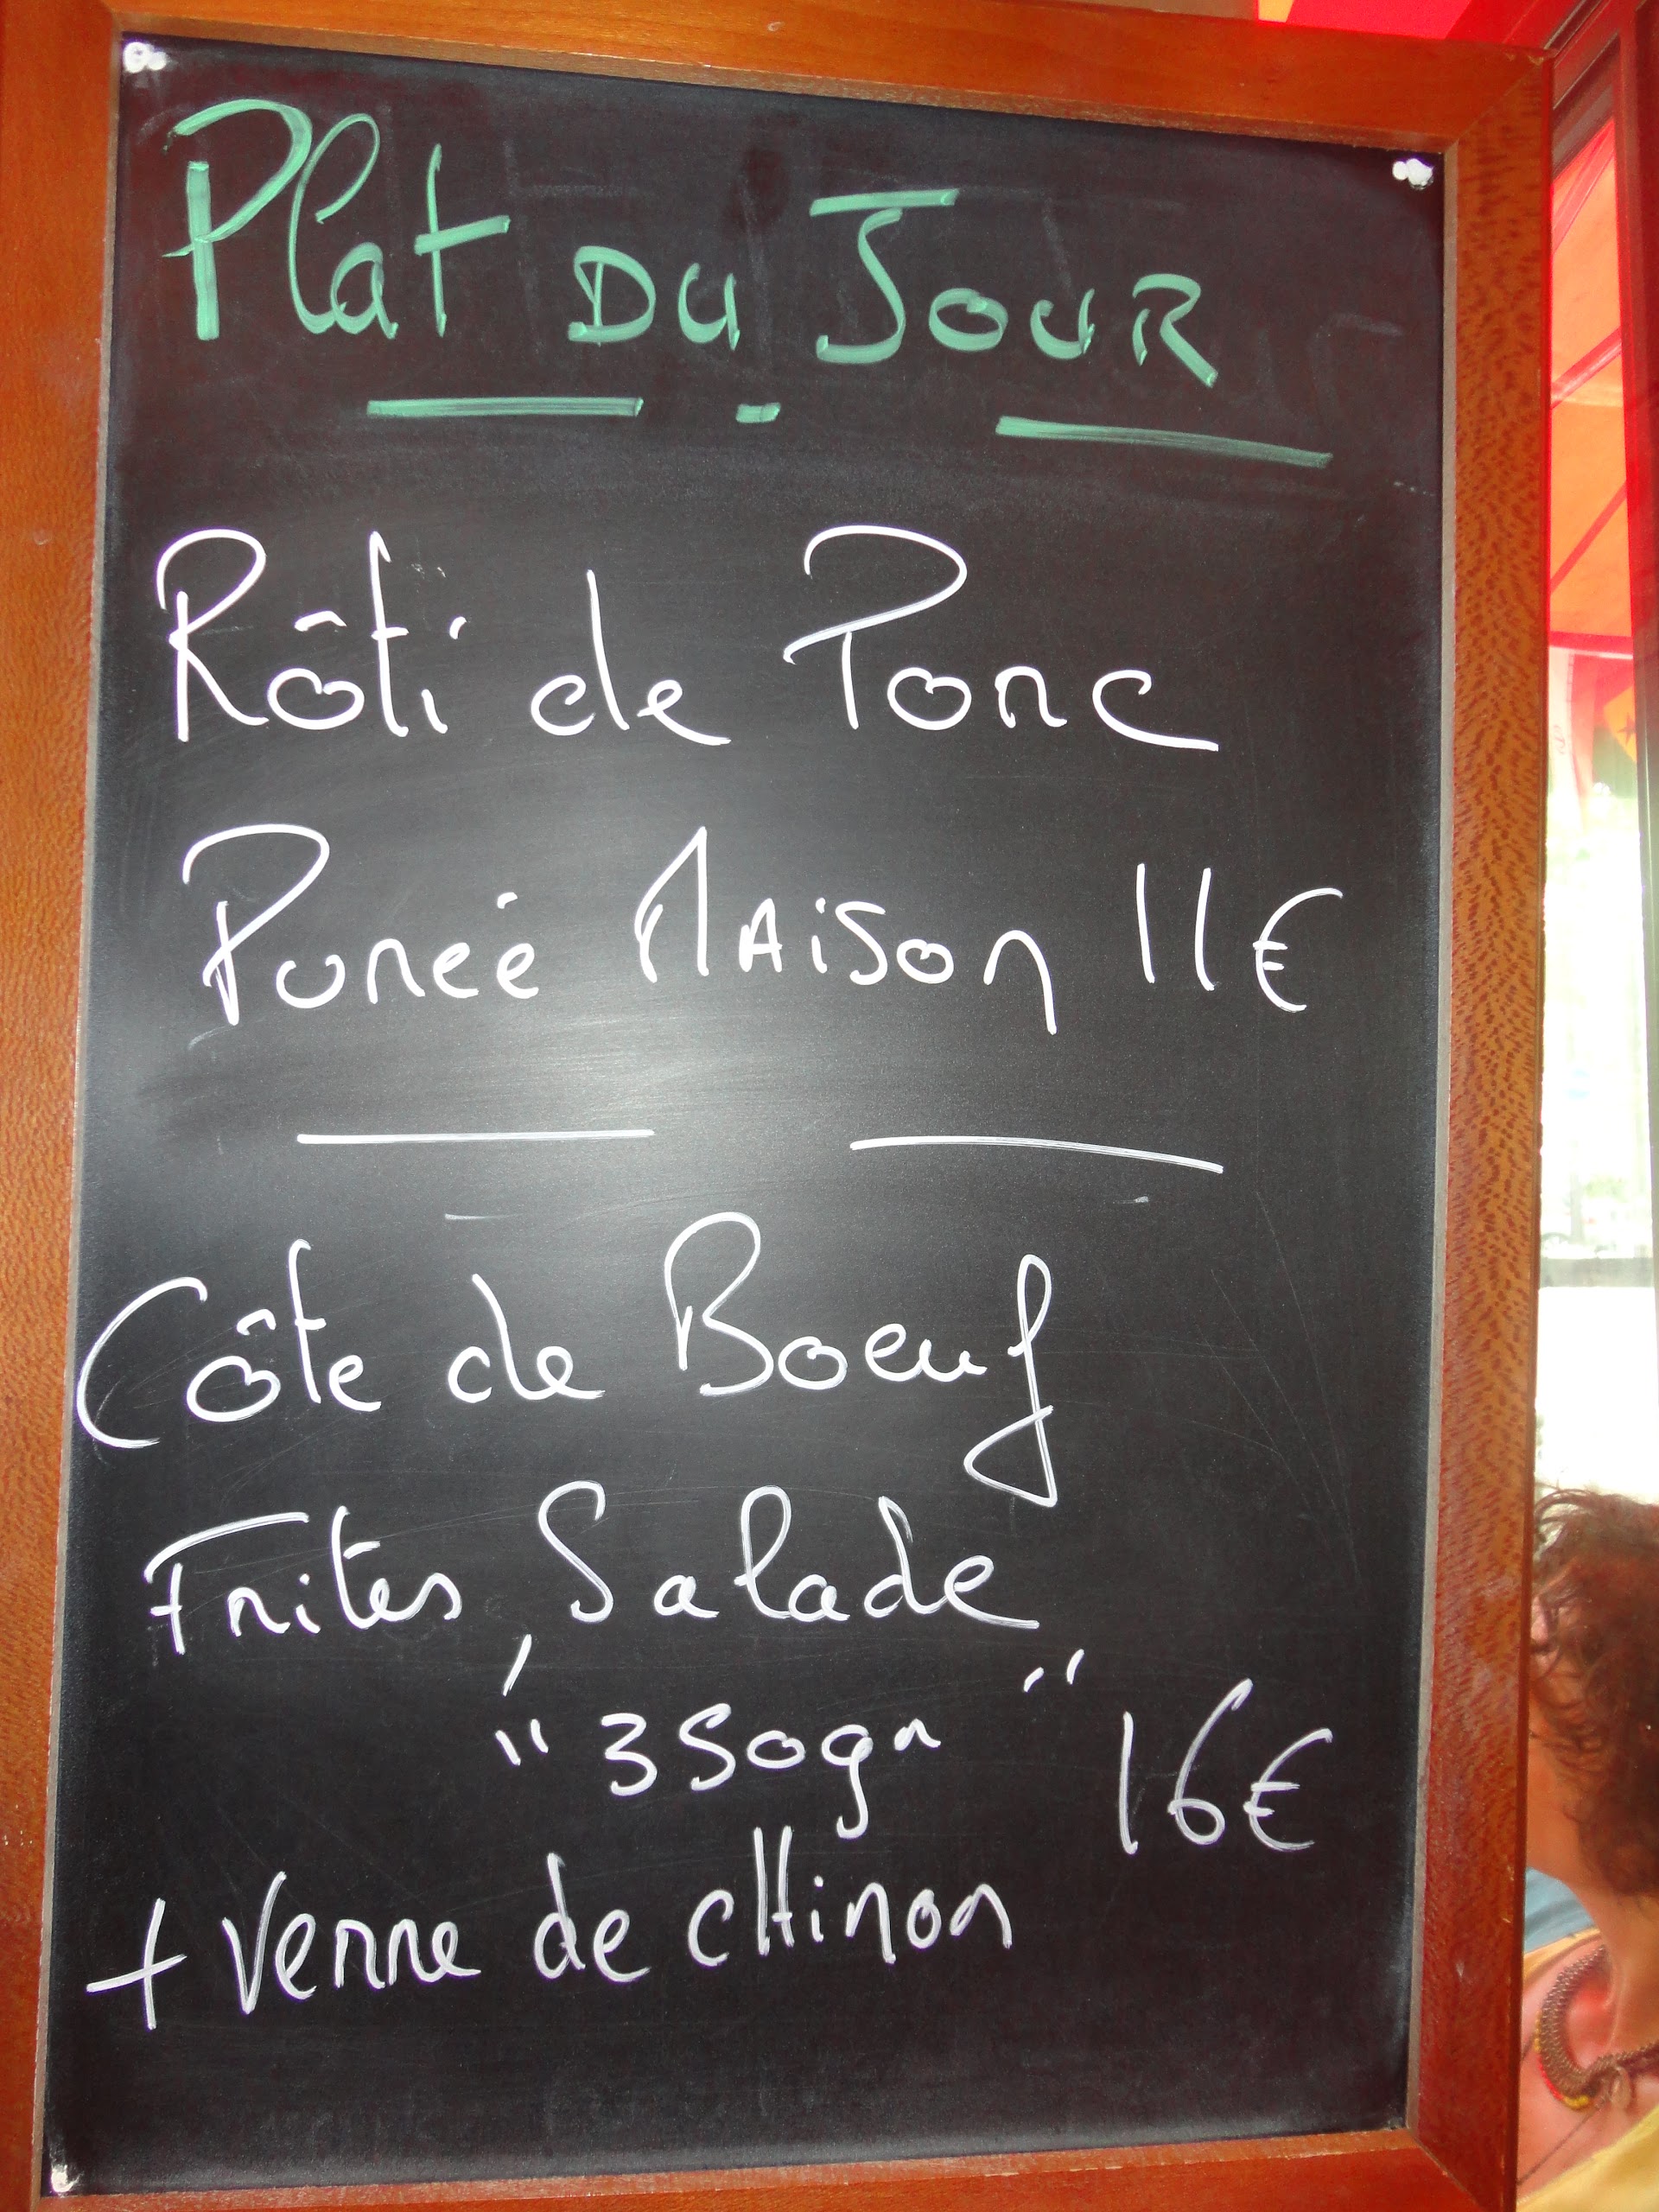 Plat DU JOUR
Rôti de Porc
Purée MAiSon 11€
Côte de Boeuf
Frites, Salade
"350gr" 16€
+ Verre de cHinon